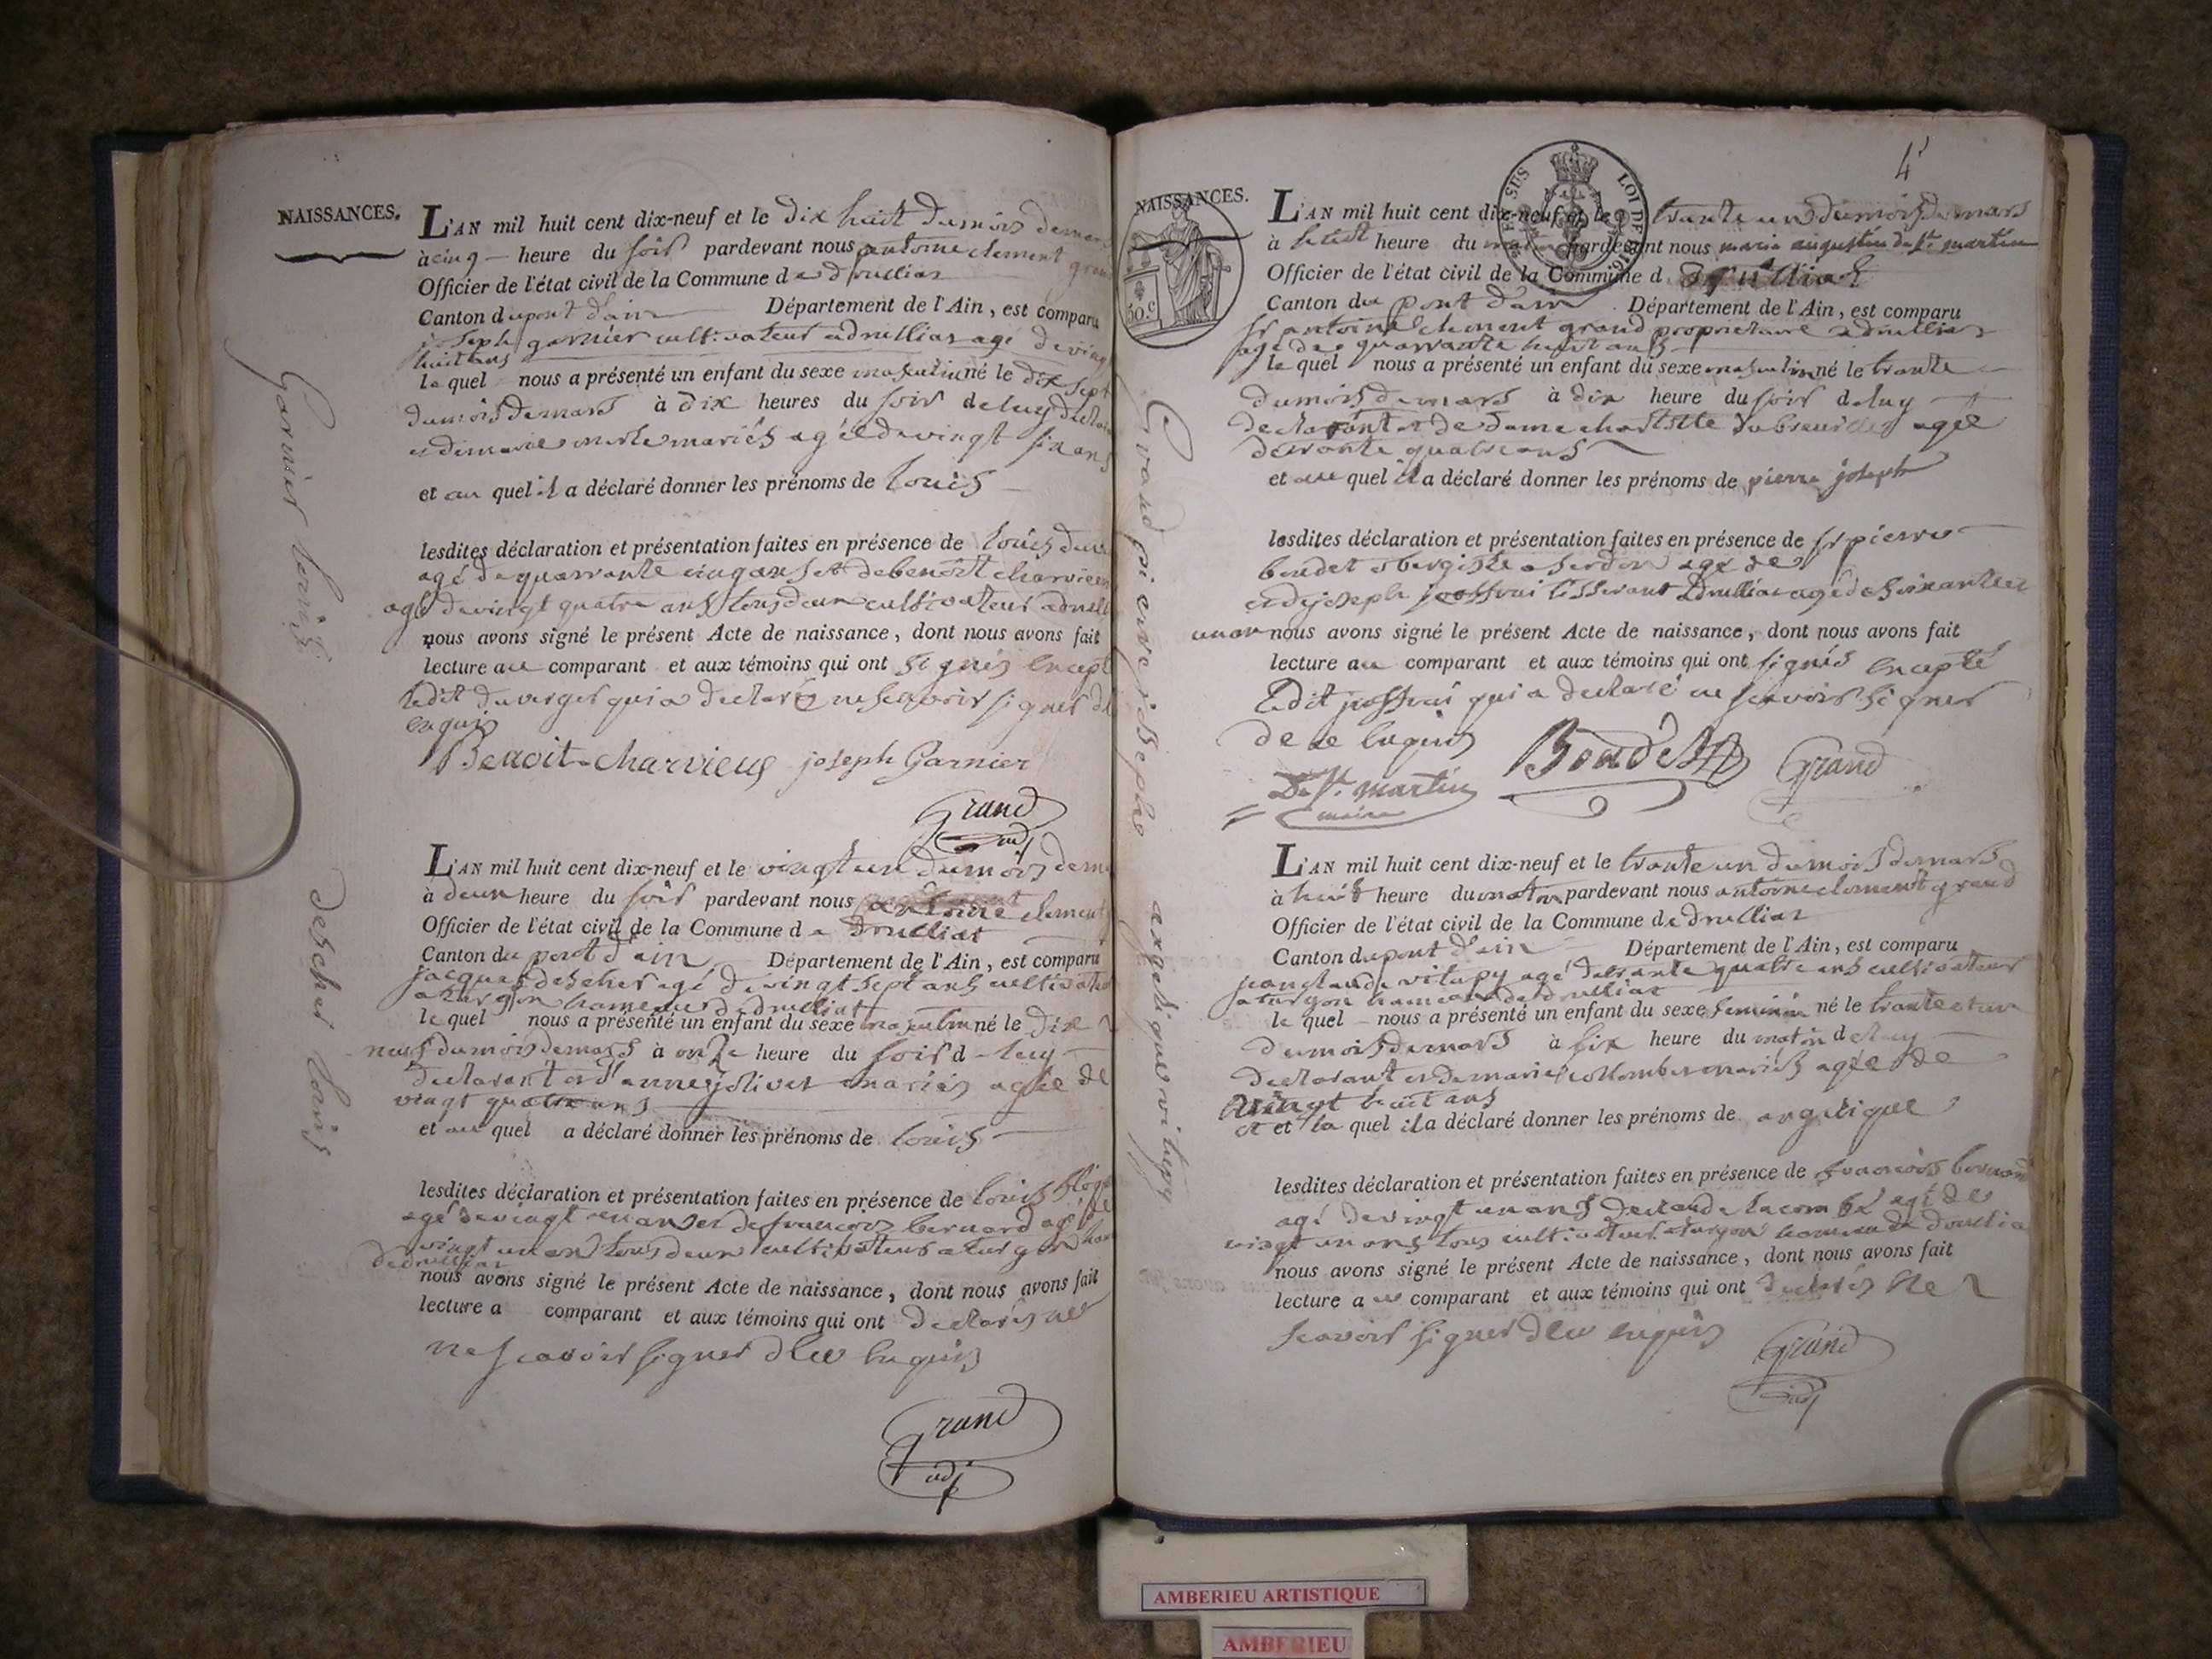 NAISSANCES.
L'AN mil huit cent dix-neuf et le dix huit du mois de
à cinq heure du soir pardevant nous antoine clement
Officier de l'état civil de la Commune de druillias
Canton du pont d'ain Département de l'Ain, est comparu
joseph garnier cultivateur a drullias agé de
huit ans
le quel nous a présenté un enfant du sexe masculin né le dix sept
du mois de mars à dix heures du soir de luy
et de marie mariés agée de vingt six ans
et au quel il a déclaré donner les prénoms de louis
lesdites déclaration et présentation faites en présence de louis
agé de quarrante cinq ans et de benoit charvieu
agé de vingt quatre ans tous deux cultivateur
nous avons signé le présent Acte de naissance, dont nous avons fait
lecture au comparant et aux témoins qui ont signés
ledit duverger qui a declaré ne scavoir signer de
enquis
Benoit-charvieu joseph Garnier
Grand
adj
garnier louis
L'AN mil huit cent dix-neuf et le vingt un du mois de
à deux heure du soir pardevant nous antoine clement
Officier de l'état civil de la Commune de Druilliat
Canton du pont d'ain Département de l'Ain, est comparu
jacques descher agé de vingt sept ans
a turgon hameau de druilliat
le quel nous a présenté un enfant du sexe masculin né le dix
neuf du mois de mars à onze heure du soir de luy
declarant et d'anne jolivet mariés agée de
vingt quatre ans
et au quel a déclaré donner les prénoms de louis
lesdites déclaration et présentation faites en présence de louis
agé de vingt un ans et de francois bernard agé de
vingt un ans tous deux cultivateurs a turgon
de drullias
nous avons signé le présent Acte de naissance, dont nous avons fait
lecture a comparant et aux témoins qui ont declarés ne
ne scavoir signer de ce enquis
Grand
adj
descher louis
4
NAISSANCES.
30. c
L'AN mil huit cent dix-neuf et le trante un du mois de mars
à huit heure du matin pardevant nous marie augustin de st martin
Officier de l'état civil de la Commune d druilliat
Canton du pont d'ain Département de l'Ain, est comparu
sr antoine clement grand proprietaire a drullias
agé de quarrante huit ans
le quel nous a présenté un enfant du sexe masculin né le trante
du mois de mars à dix heure du soir de luy
declarant et de dame agée
de trante quatre ans
et au quel il a déclaré donner les prénoms de pierre joseph
lesdites déclaration et présentation faites en présence de sr pierre
boudet obergiste a serdon agé de
et de joseph tisserant a drullias agé de soixante et
un an nous avons signé le présent Acte de naissance, dont nous avons fait
lecture au comparant et aux témoins qui ont signés excepté
ledit qui a declaré ne scavoir signer
de ce enquis
De St. martin Boudet Grand
maire
grand pierre joseph
L'AN mil huit cent dix-neuf et le trante un du mois de mars
à huit heure du matin pardevant nous antoine clement grand
Officier de l'état civil de la Commune de drullias
Canton du pont d'ain Département de l'Ain, est comparu
jean claude vitupy agé de trante quatre ans cultivateur
a turgon hameau de drulliat
le quel nous a présenté un enfant du sexe feminin né le trante et un
du mois de mars à six heure du matin de luy
declarant et de marie mariés agée de
vingt huit ans
et et la quel il a déclaré donner les prénoms de angelique
lesdites déclaration et présentation faites en présence de francois bernard
agé de vingt un ans de claude lacombe agé de
vingt un ans tous cultivateur a turgon hameau de
nous avons signé le présent Acte de naissance, dont nous avons fait
lecture au comparant et aux témoins qui ont declarés ne
scavoir signer de ce enquis
Grand
adj
angelique vitupy
AMBERIEU ARTISTIQUE
AMBERIEU